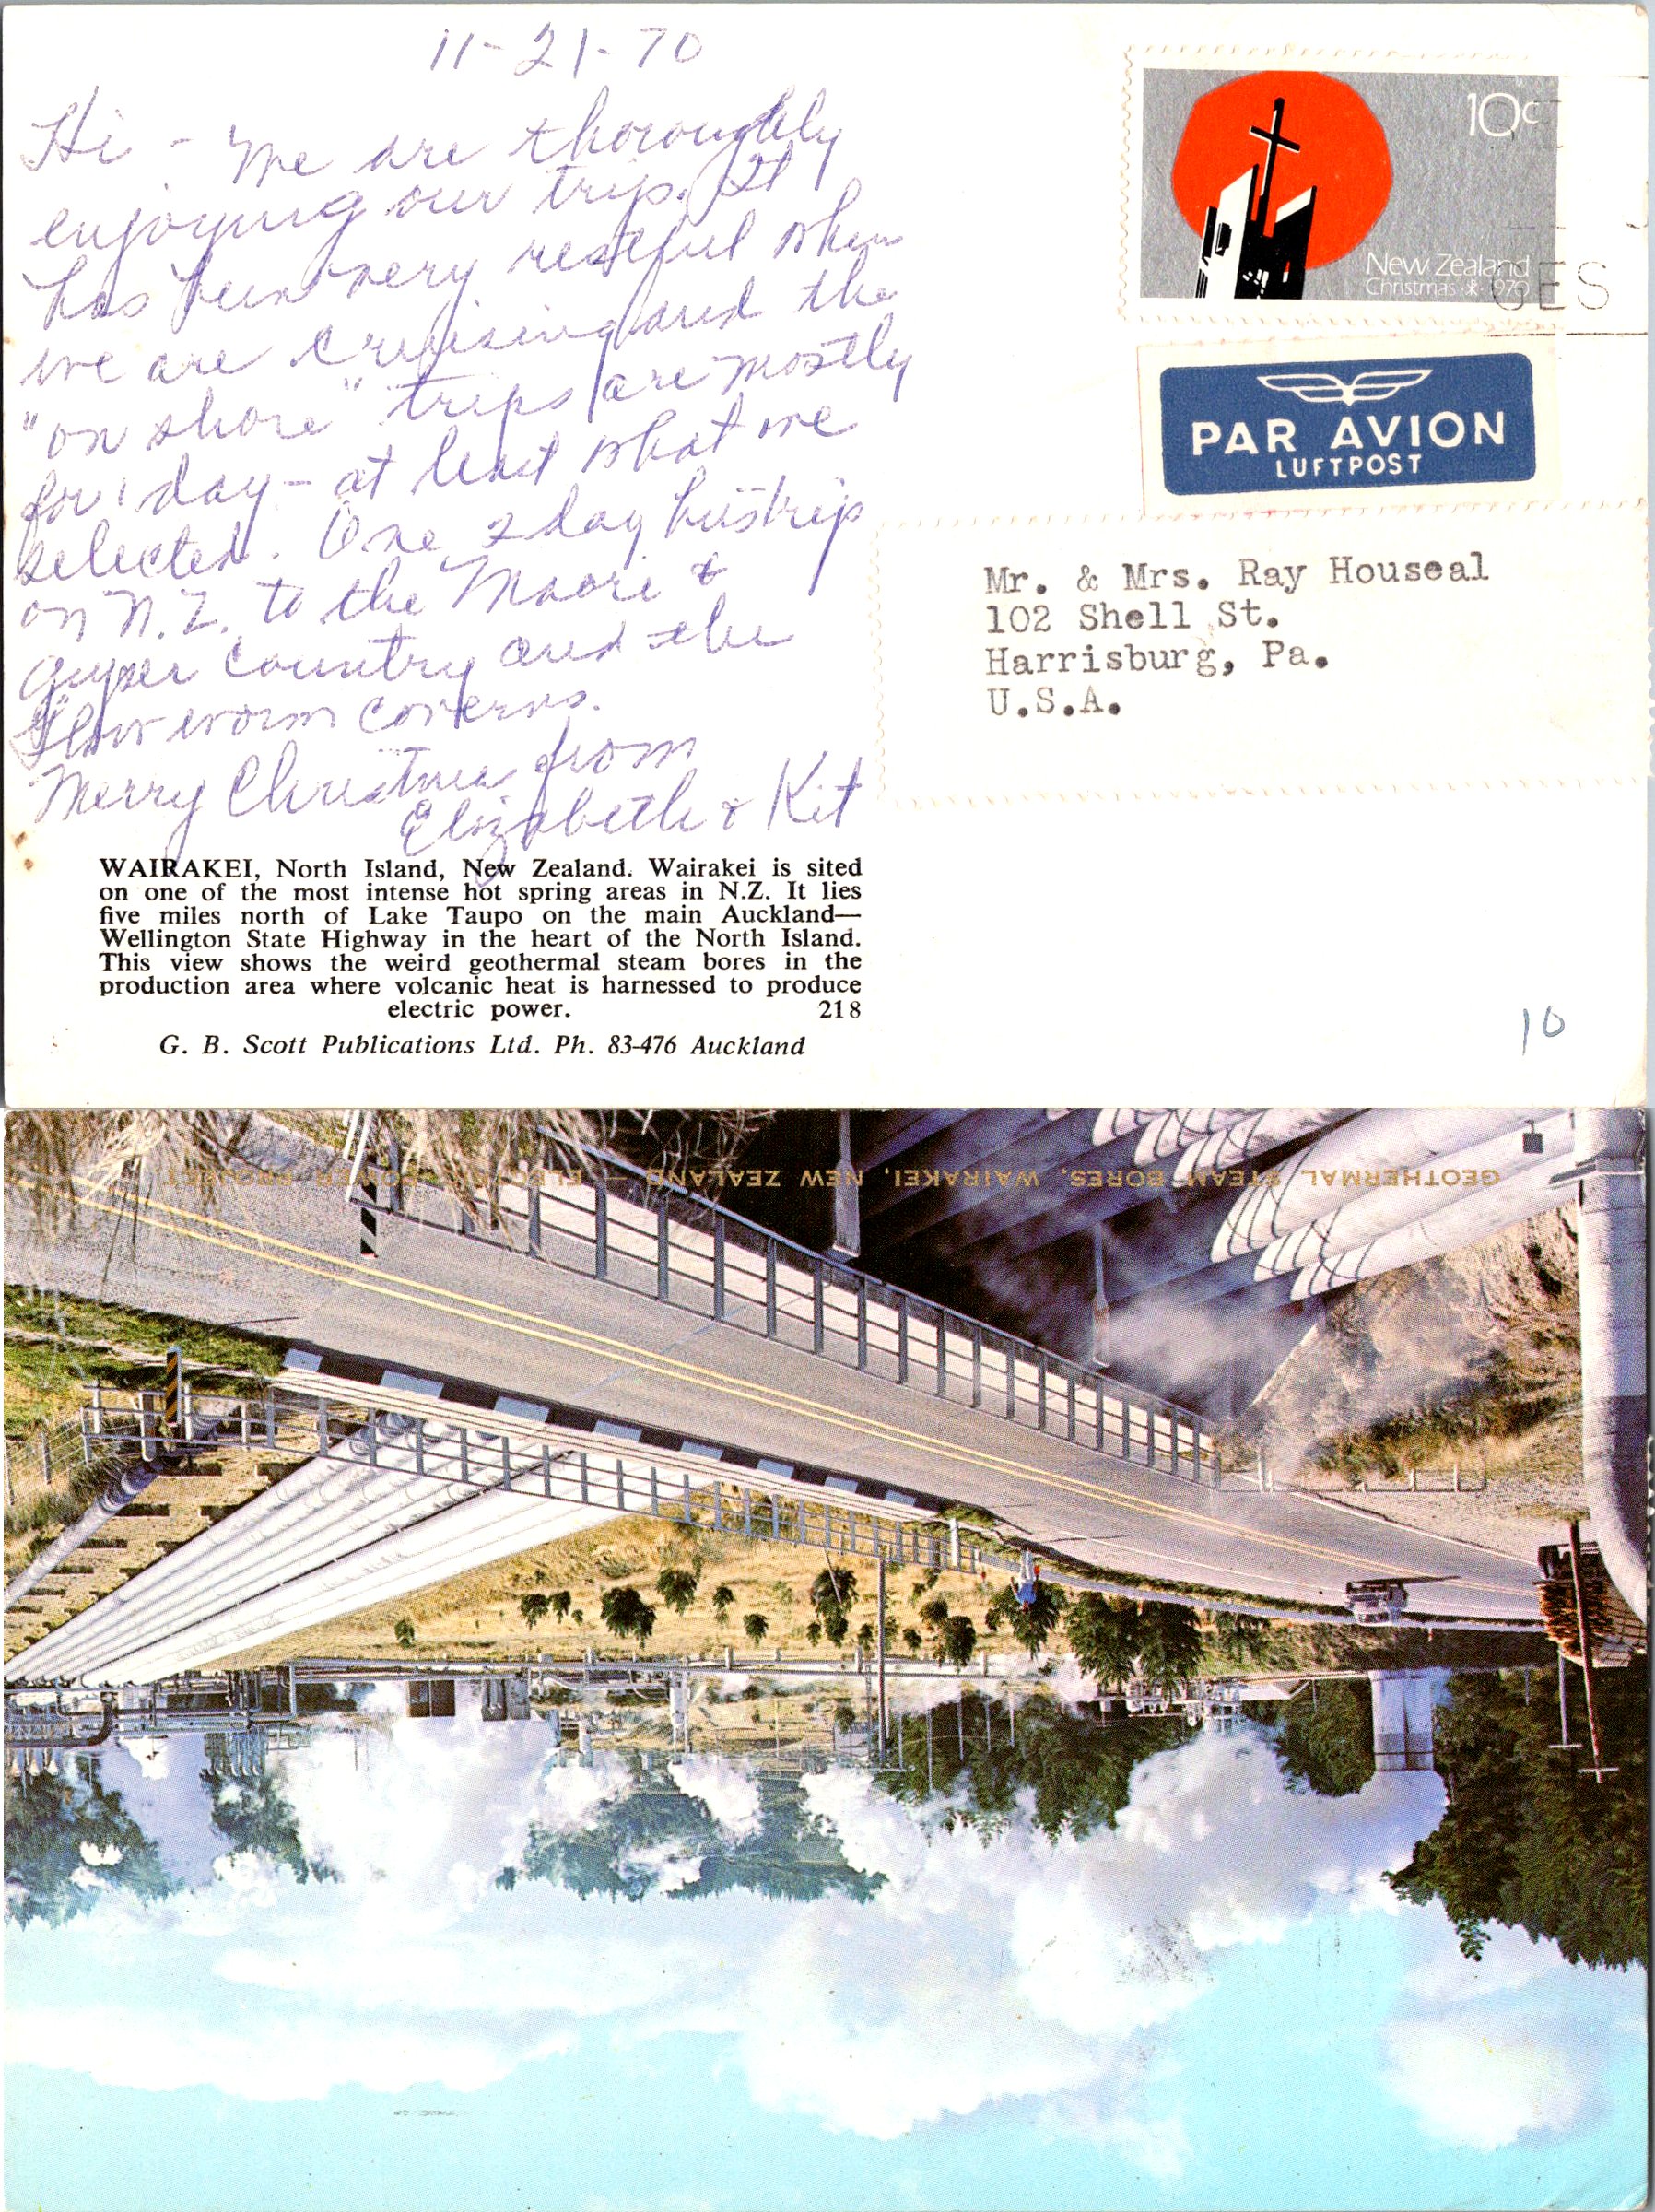 11-21-70
Hi - We are thoroughly
enjoying our trip. It
has been very restful when
we are cruising and the
"on shore" trips are mostly
for 1 day - at least what we
selected. One 2 day bus trip
on N.Z. to the Maori &
geyser country and the
glow worm caverns.
Merry Christmas from
Elizabeth & Kit
WAIRAKEI, North Island, New Zealand. Wairakei is sited
on one of the most intense hot spring areas in N.Z. It lies
five miles north of Lake Taupo on the main Auckland—
Wellington State Highway in the heart of the North Island.
This view shows the weird geothermal steam bores in the
production area where volcanic heat is harnessed to produce
electric power. 218
G. B. Scott Publications Ltd. Ph. 83-476 Auckland
10c
New Zealand
Christmas 1970
GES
PAR AVION
LUFTPOST
Mr. & Mrs. Ray Houseal
102 Shell St.
Harrisburg, Pa.
U.S.A.
10
GEOTHERMAL STEAM BORES, WAIRAKEI, NEW ZEALAND — ELECTRIC POWER PROJECT